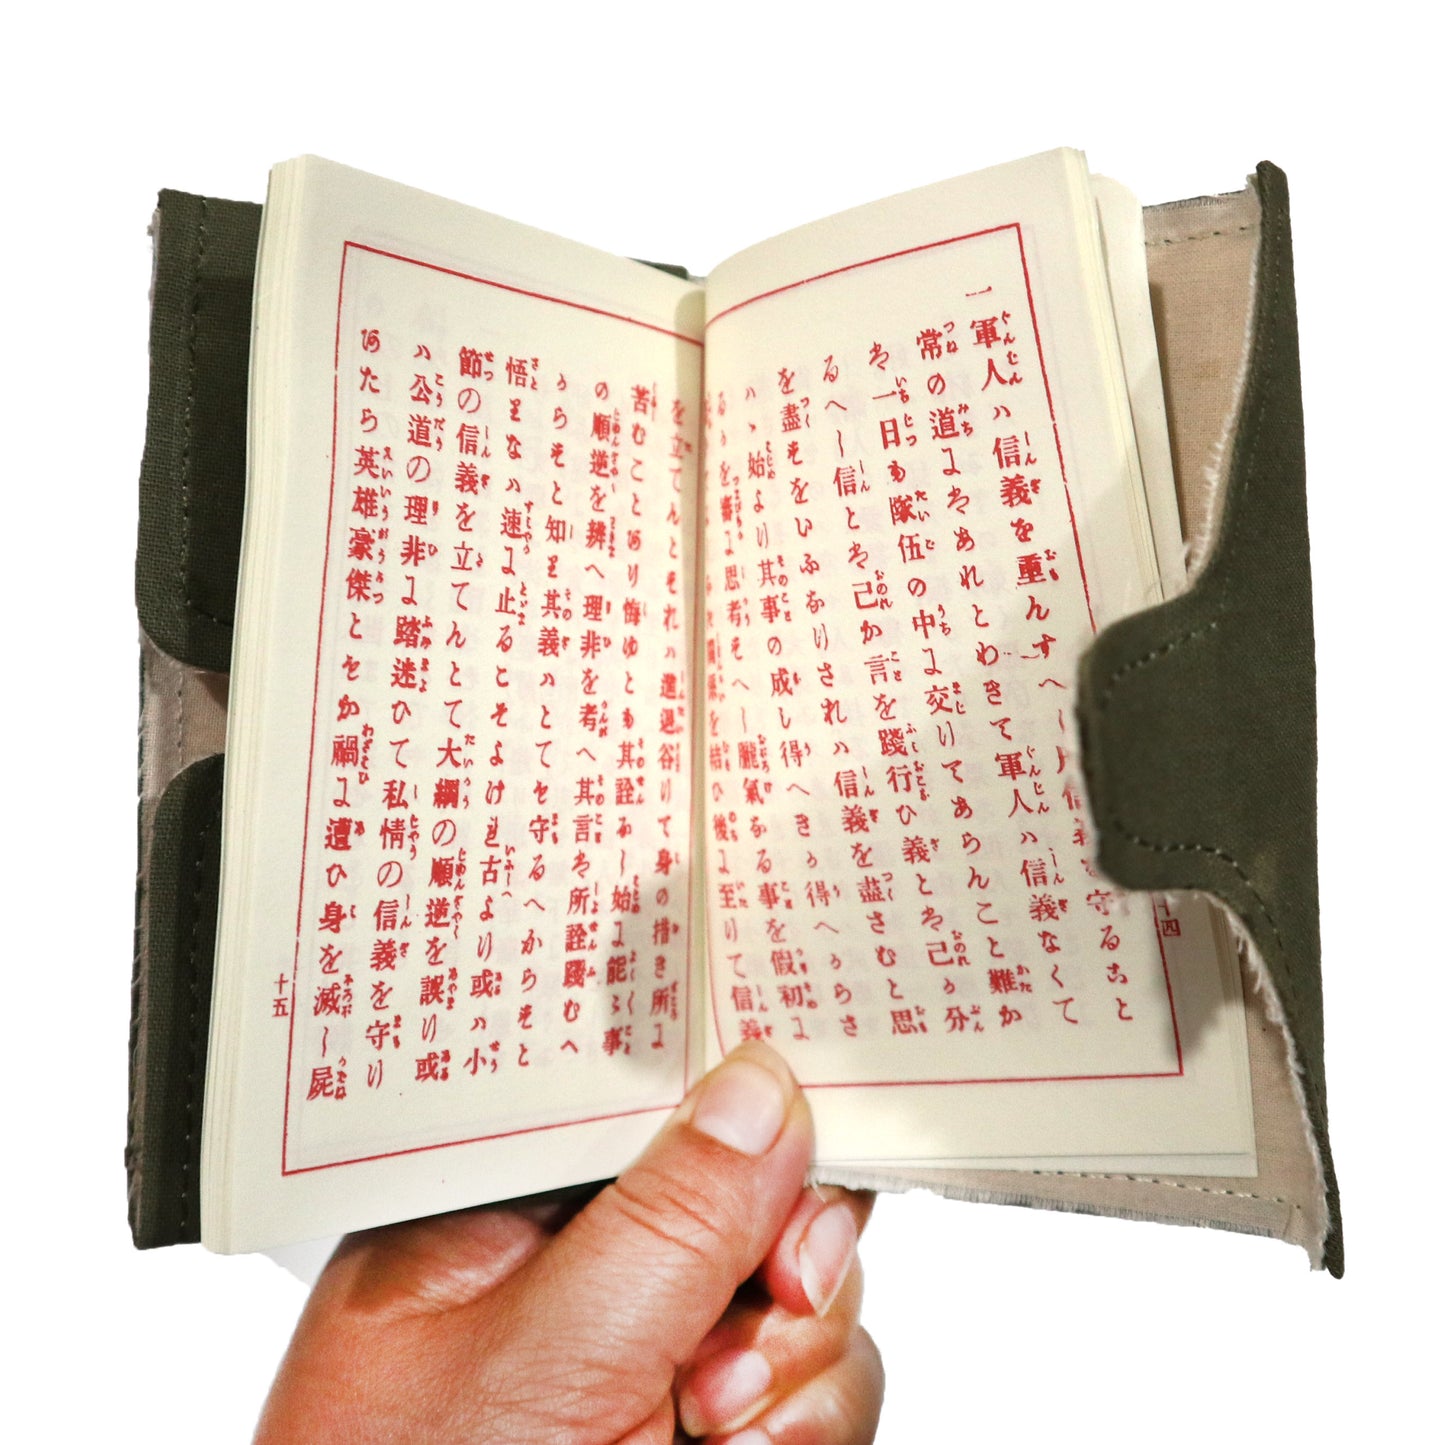 一軍人ハ信義を重んすへし凡信義を守ること
常の道にハあれとわきて軍人ハ信義なくて
ハ一日も隊伍の中に交りてあらんこと難か
るへし信とハ己か言を踐行ひ義とハ己か分
を盡すをいふなりされハ信義を盡さむと思
ハヽ始より其事の成し得へきか得へからさ
るかを審に思考すへし朧氣なる事を假初に
關係を結ひ後に至りて信義
を立てんとすれハ進退谷りて身の措き所に
苦むことあり悔ゆとも其詮なし始に能々事
の順逆を辨へ理非を考へ其言ハ所詮踐むへ
からすと知り其義ハとても守るへからすと
悟りなハ速に止るこそよけれ古より或ハ小
節の信義を立てんとて大綱の順逆を誤り或
ハ公道の理非に踏迷ひて私情の信義を守り
あたら英雄豪傑ともか禍に遭ひ身を滅し屍
十四
十五